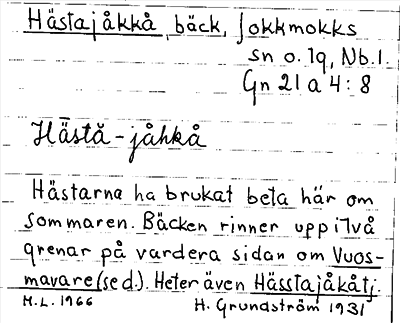 Hästajåkkå, bäck, Jokkmokks
sn o. lq, Nb.l.
Gn 21 a 4:8
Hā̆stă-jåhkå
Hästarna ha brukat beta här om
sommaren. Bäcken rinner upp i två
grenar på vardera sidan om Vuos-
mavare (se d.). Heter även Hässtajåkåtj.
M.L. 1966 H. Grundström 1931